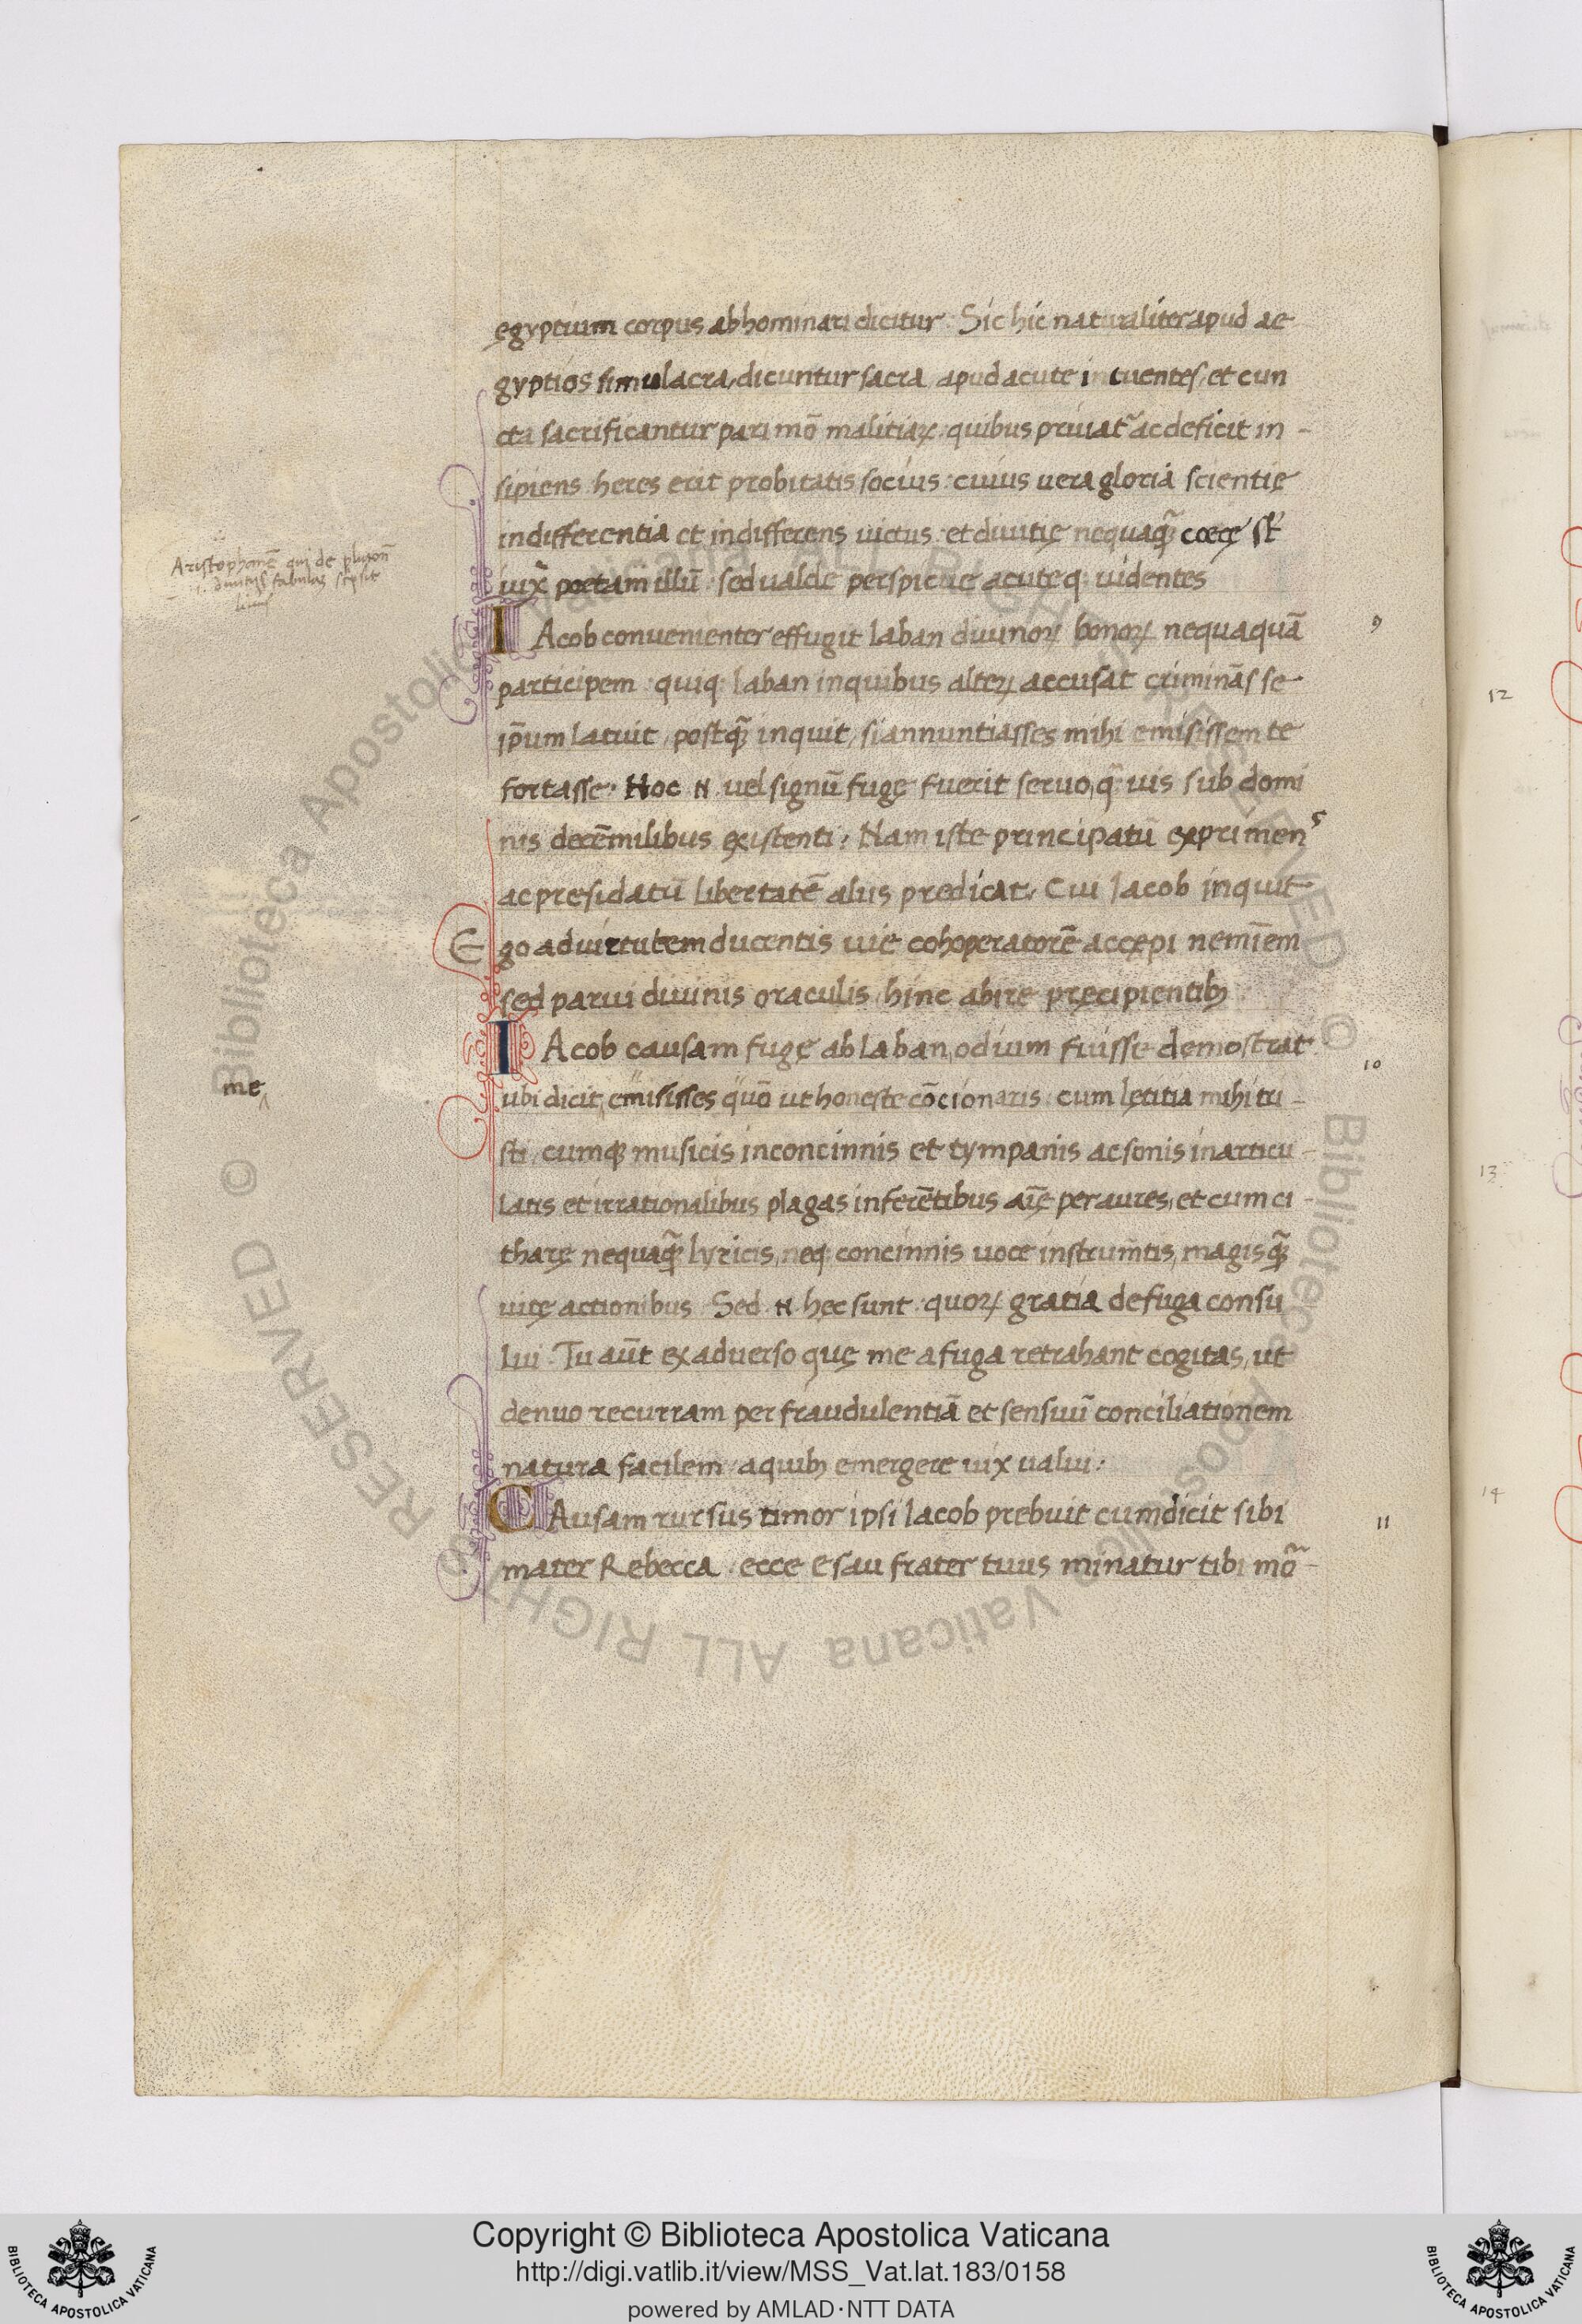 egyptium corpus abhominari dicitur. Sic hic naturaliter apud ae
gyptios simulacra, dicuntur sacra apud acute intuentes, et cun
cta sacrificantur pari mō malitiaꝝ: quibus priuat̃ ac deficit in -
sipiens. heres erit probitatis socius: cuius uera gloria scientię
indifferentia et indifferens uictus: et diuitię nequaq̃ cœcę st̃
iuxͣ poetam illū: sed ualde perspicue acuteq: uidentes
Aristophanē qui de plutōn
diuitijs fabulas scripsit
IAcob conuenienter effugit laban diuinoꝝ bonoꝝ nequaquā
9
participem: quiq: laban in quibus alteꝝ accusat criminās se
ip̄um latuit, postq̃ inquit, si annuntiasses mihi emisissem te
fortasse. Hoc .N. uel signū fugę fuerit seruo, q̃uis sub domi
nis decēmilibus existenti: Nam iste principatū exprimens
ac presidatū libertatē aliis predicat. Cui Iacob inquit
Ego ad uirtutem ducentis uię cohoperatorē accepi neminem
sed parui diuinis oraculis hinc abire pręcipientibꝫ
IAcob causam fugę ab Laban, odium fuisse demostrat
10
me
ubi dicit, emisisses quō ut honeste cōcionaris: cum lętitia mihi tri -
sti, cumqꝫ musicis inconcinnis et tympanis ac sonis inarticu -
latis et irrationalibus plagas inferētibus aīę per aures, et cum ci -
tharę nequaq̃ lyricis, neq: concinnis uoce instrum̄tis, magisq̃
uitę actionibus. Sed .N. hęc sunt: quoꝝ gratia de fuga consu
lui. Tu aūt ex aduerso quę me a fuga retrahant cogitas, ut
denuo recurram per fraudulentiā et sensuū conciliationem
natura facilem: a quibꝫ emergere uix ualui:
CAusam rursus timor ipsi Iacob prebuit cum dicit sibi
11
mater Rebecca: ecce Esau frater tuus minatur tibi mō -
12
13
14
Copyright © Biblioteca Apostolica Vaticana
http://digi.vatlib.it/view/MSS_Vat.lat.183/0158
powered by AMLAD·NTT DATA
BIBLIOTECA APOSTOLICA VATICANA
BIBLIOTECA APOSTOLICA VATICANA